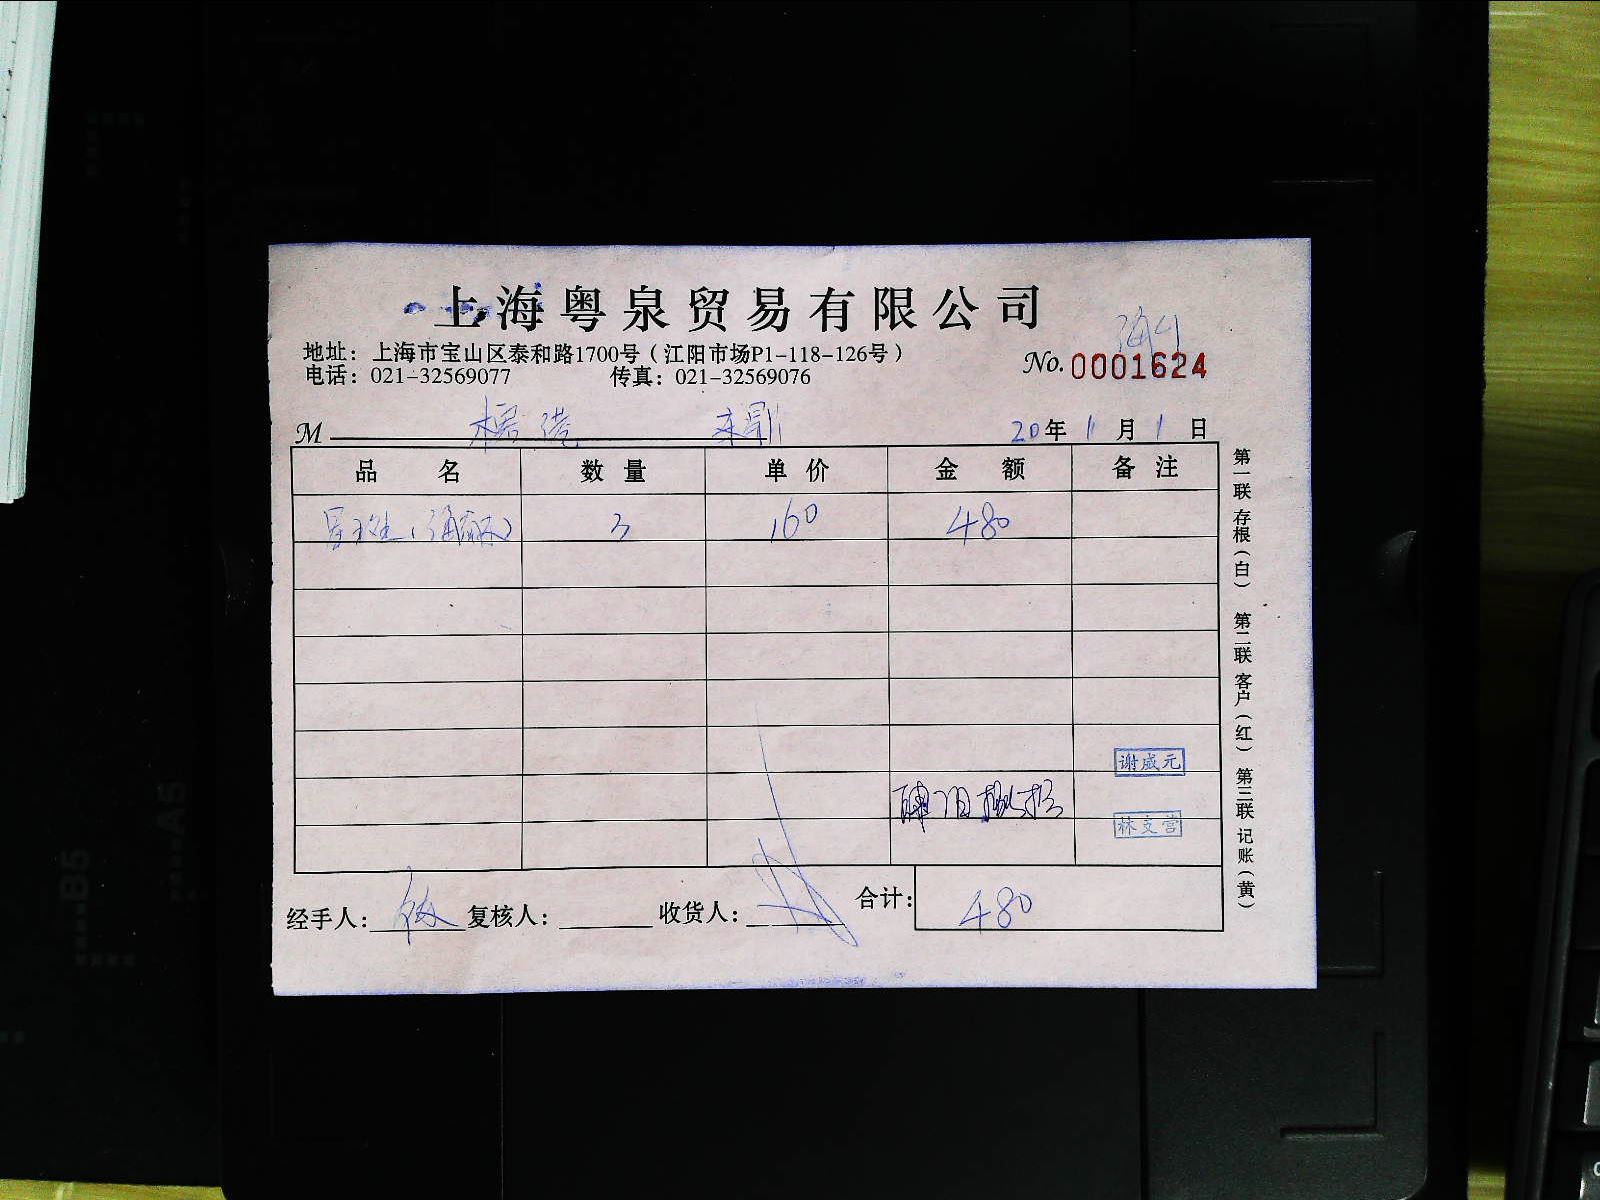 上海粤泉贸易有限公司
地址：上海市宝山区泰和路1700号（江阳市场P1-118-126号）
电话：021-32569077 传真：021-32569076
No. 0001624
M 港
20年11月1日
品名 数量 单价 金额 备注
3 160 480
谢威元
肆佰捌拾
林文营
经手人： 复核人： 收货人： 合计：480
第一联 存根（白） 第二联 客户（红） 第三联 记账（黄）
B5
A5